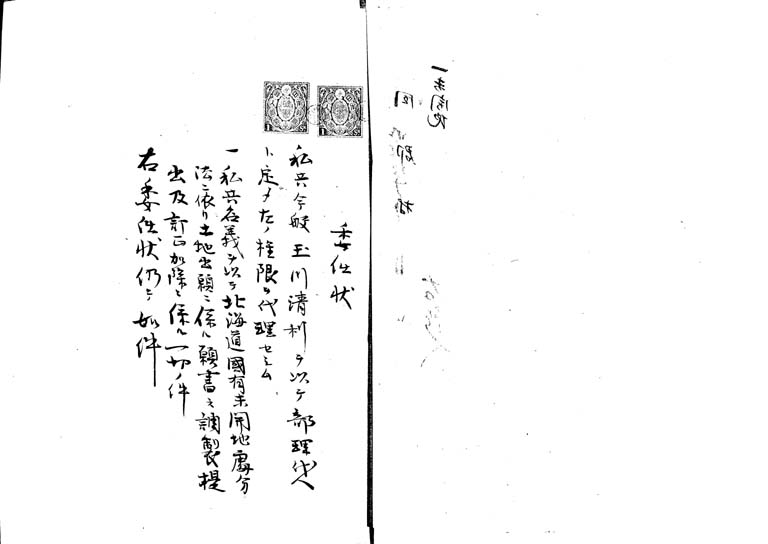 一未開地
委任状
私共今般玉川清利ヲ以テ部理代人
ト定メ左ノ権限ヲ代理セシム
一私共名義ヲ以テ北海道國有未開地處分
法ニ依リ土地出願ニ係ル願書之調製提
出及訂正加除ニ係ル一切ノ件
右委任状仍テ如件